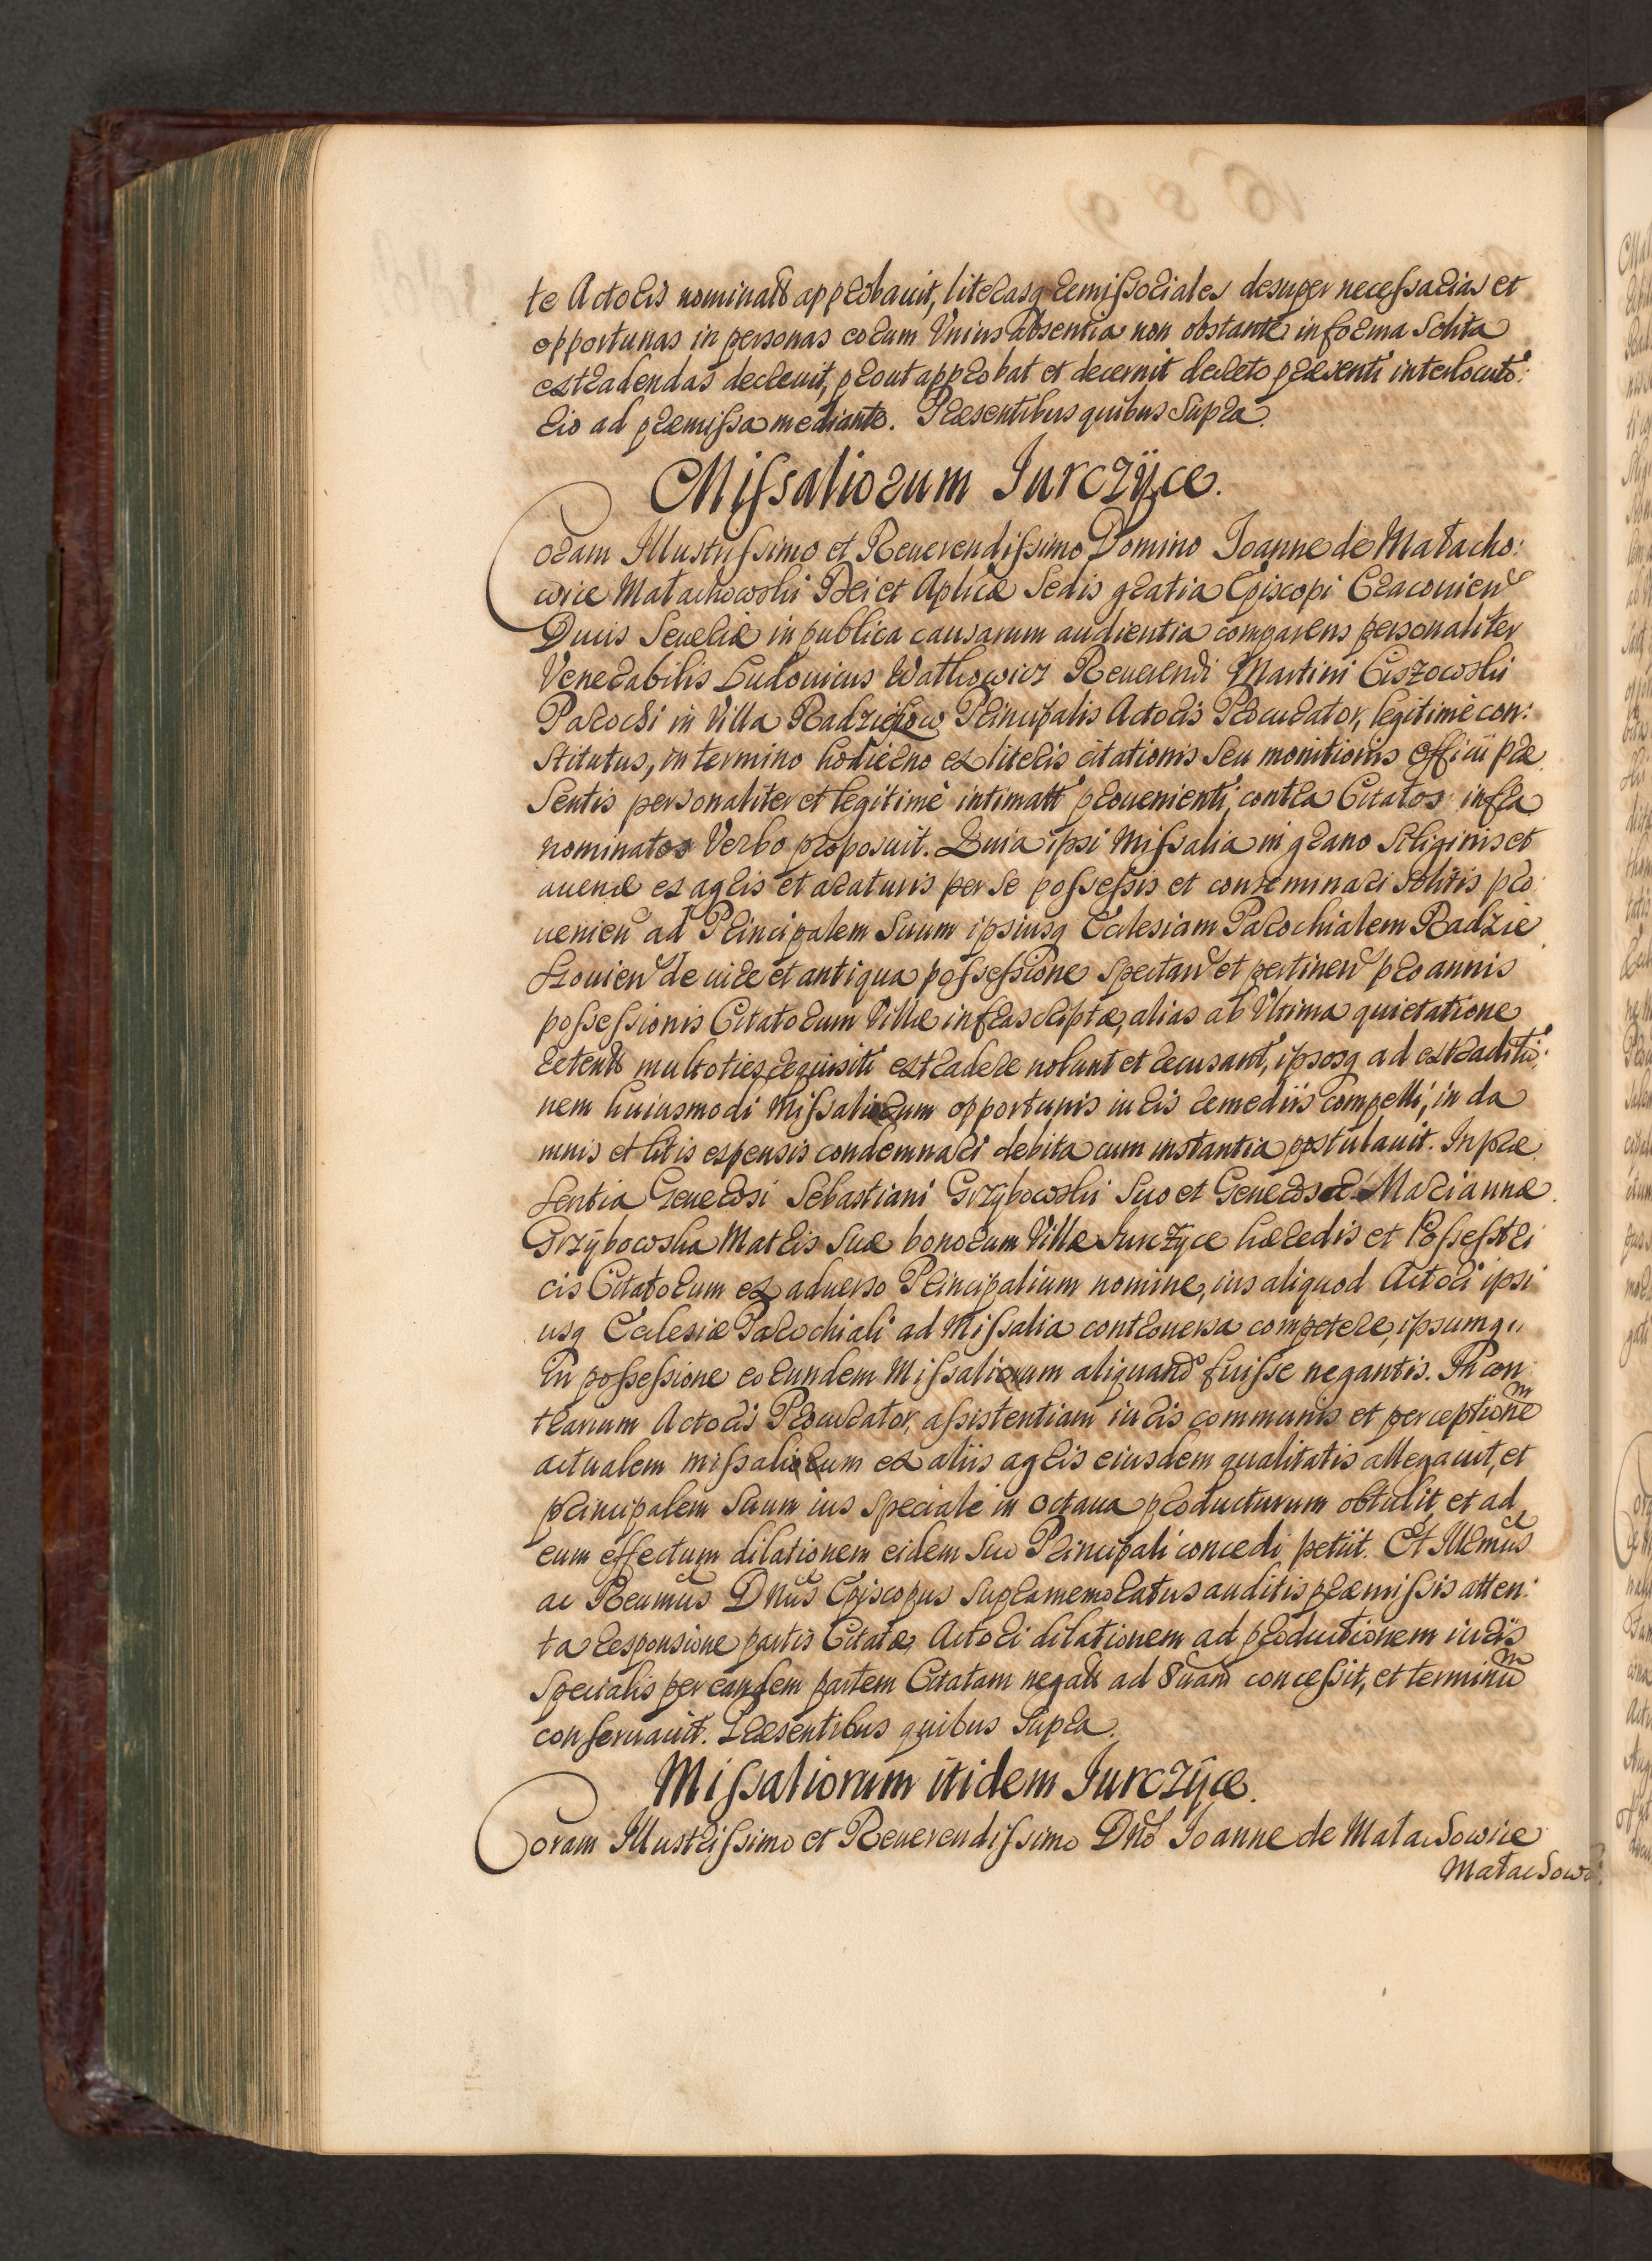 te Actoris nominatas approbauit, literasq remissoriales desuper necessarias et
opportunas in personas eorum Vnius absentia non obstante in forma Solita
extradendas decreuit, prout approbat et decernit decreto præsenti interlocuto:
rio ad præmissa mediante. Præsentibus quibus Supra.
Missaliorum Jurczÿce.
Coram Illustrissimo et Reuerendissimo Domino Joanne de Małacho:
wice Małachowski Dei et Aplicæ Sedis gratia Episcopi Cracouien
Ducis Seueriæ in publica causarum audientia comparens personaliter
Venerabilis Ludouicus Wathowicz Reuerendi Martini Ciszowski
Parochi in Villa Radziszow Principalis Actoris Procurator, legitimè con:
stitutus, in termino hodierno ex literis citationis Seu monitionis officii præ
Sentis personaliter et legitimè intimat prouenienti, contra Citatos infra
nominatos Verbo proposuit. Quia ipsi Missalia in grano Siliginis et
auenæ ex agris et araturis per Se possessis et conseminari Solitis pro
uenien ad Principalem Suum ipsiusq Ecclesiam Parochialem Radzie
szouien de iure et antiqua possessione Spectan et pertinen pro annis
possessionis Citatorum Villæ infrascriptæ, alias ab Vltima quietatione
retent multoties requisiti extradere nolunt et recusant, ipsosq ad extraditio:
nem huiusmodi Missaliorum opportunis iuris remediis compelli, in da
mnis et litis expensis condemnari debita cum instantia postulauit. In præ
sentia Generosi Sebastiani Grzÿbowski Suo et Generosæ Mariannæ
Grzÿbowska Matris Suæ bonorum Villæ Jurczÿce hæredis et Possessri
cis Citatorum ex aduerso Principalium nomine, ius aliquod Actori ipsi
usq Ecclesiæ Parochiali ad Missalia controuersa competere, ipsumq
In possessione eorundem Missaliorum aliquando fuisse negantis. In con
trarium Actoris Procurator, assistentiam iuris communis et perceptione
actualem missaliorum ex aliis agris eiusdem qualitatis allegauit, et
principalem Suum ius Speciale in octaua producturum obtulit, et ad
eum effectum dilationem eidem Suo Principali concedi petiit. Et Illmus
ac Reumus Dnus Episcopus Supramemoratus auditis præmissis atten:
ta responsione partis Citatæ, Actori dilationem ad productionem iuris
Specialis per eandem partem Citatam negat ad 8uam concessit, et terminu
conseruauit. Præsentibus quibus Supra.
Missaliorum itidem Jurczÿce.
Coram Illustrissimo et Reuerendissimo Dno Joanne de Małachowice
Małachows: